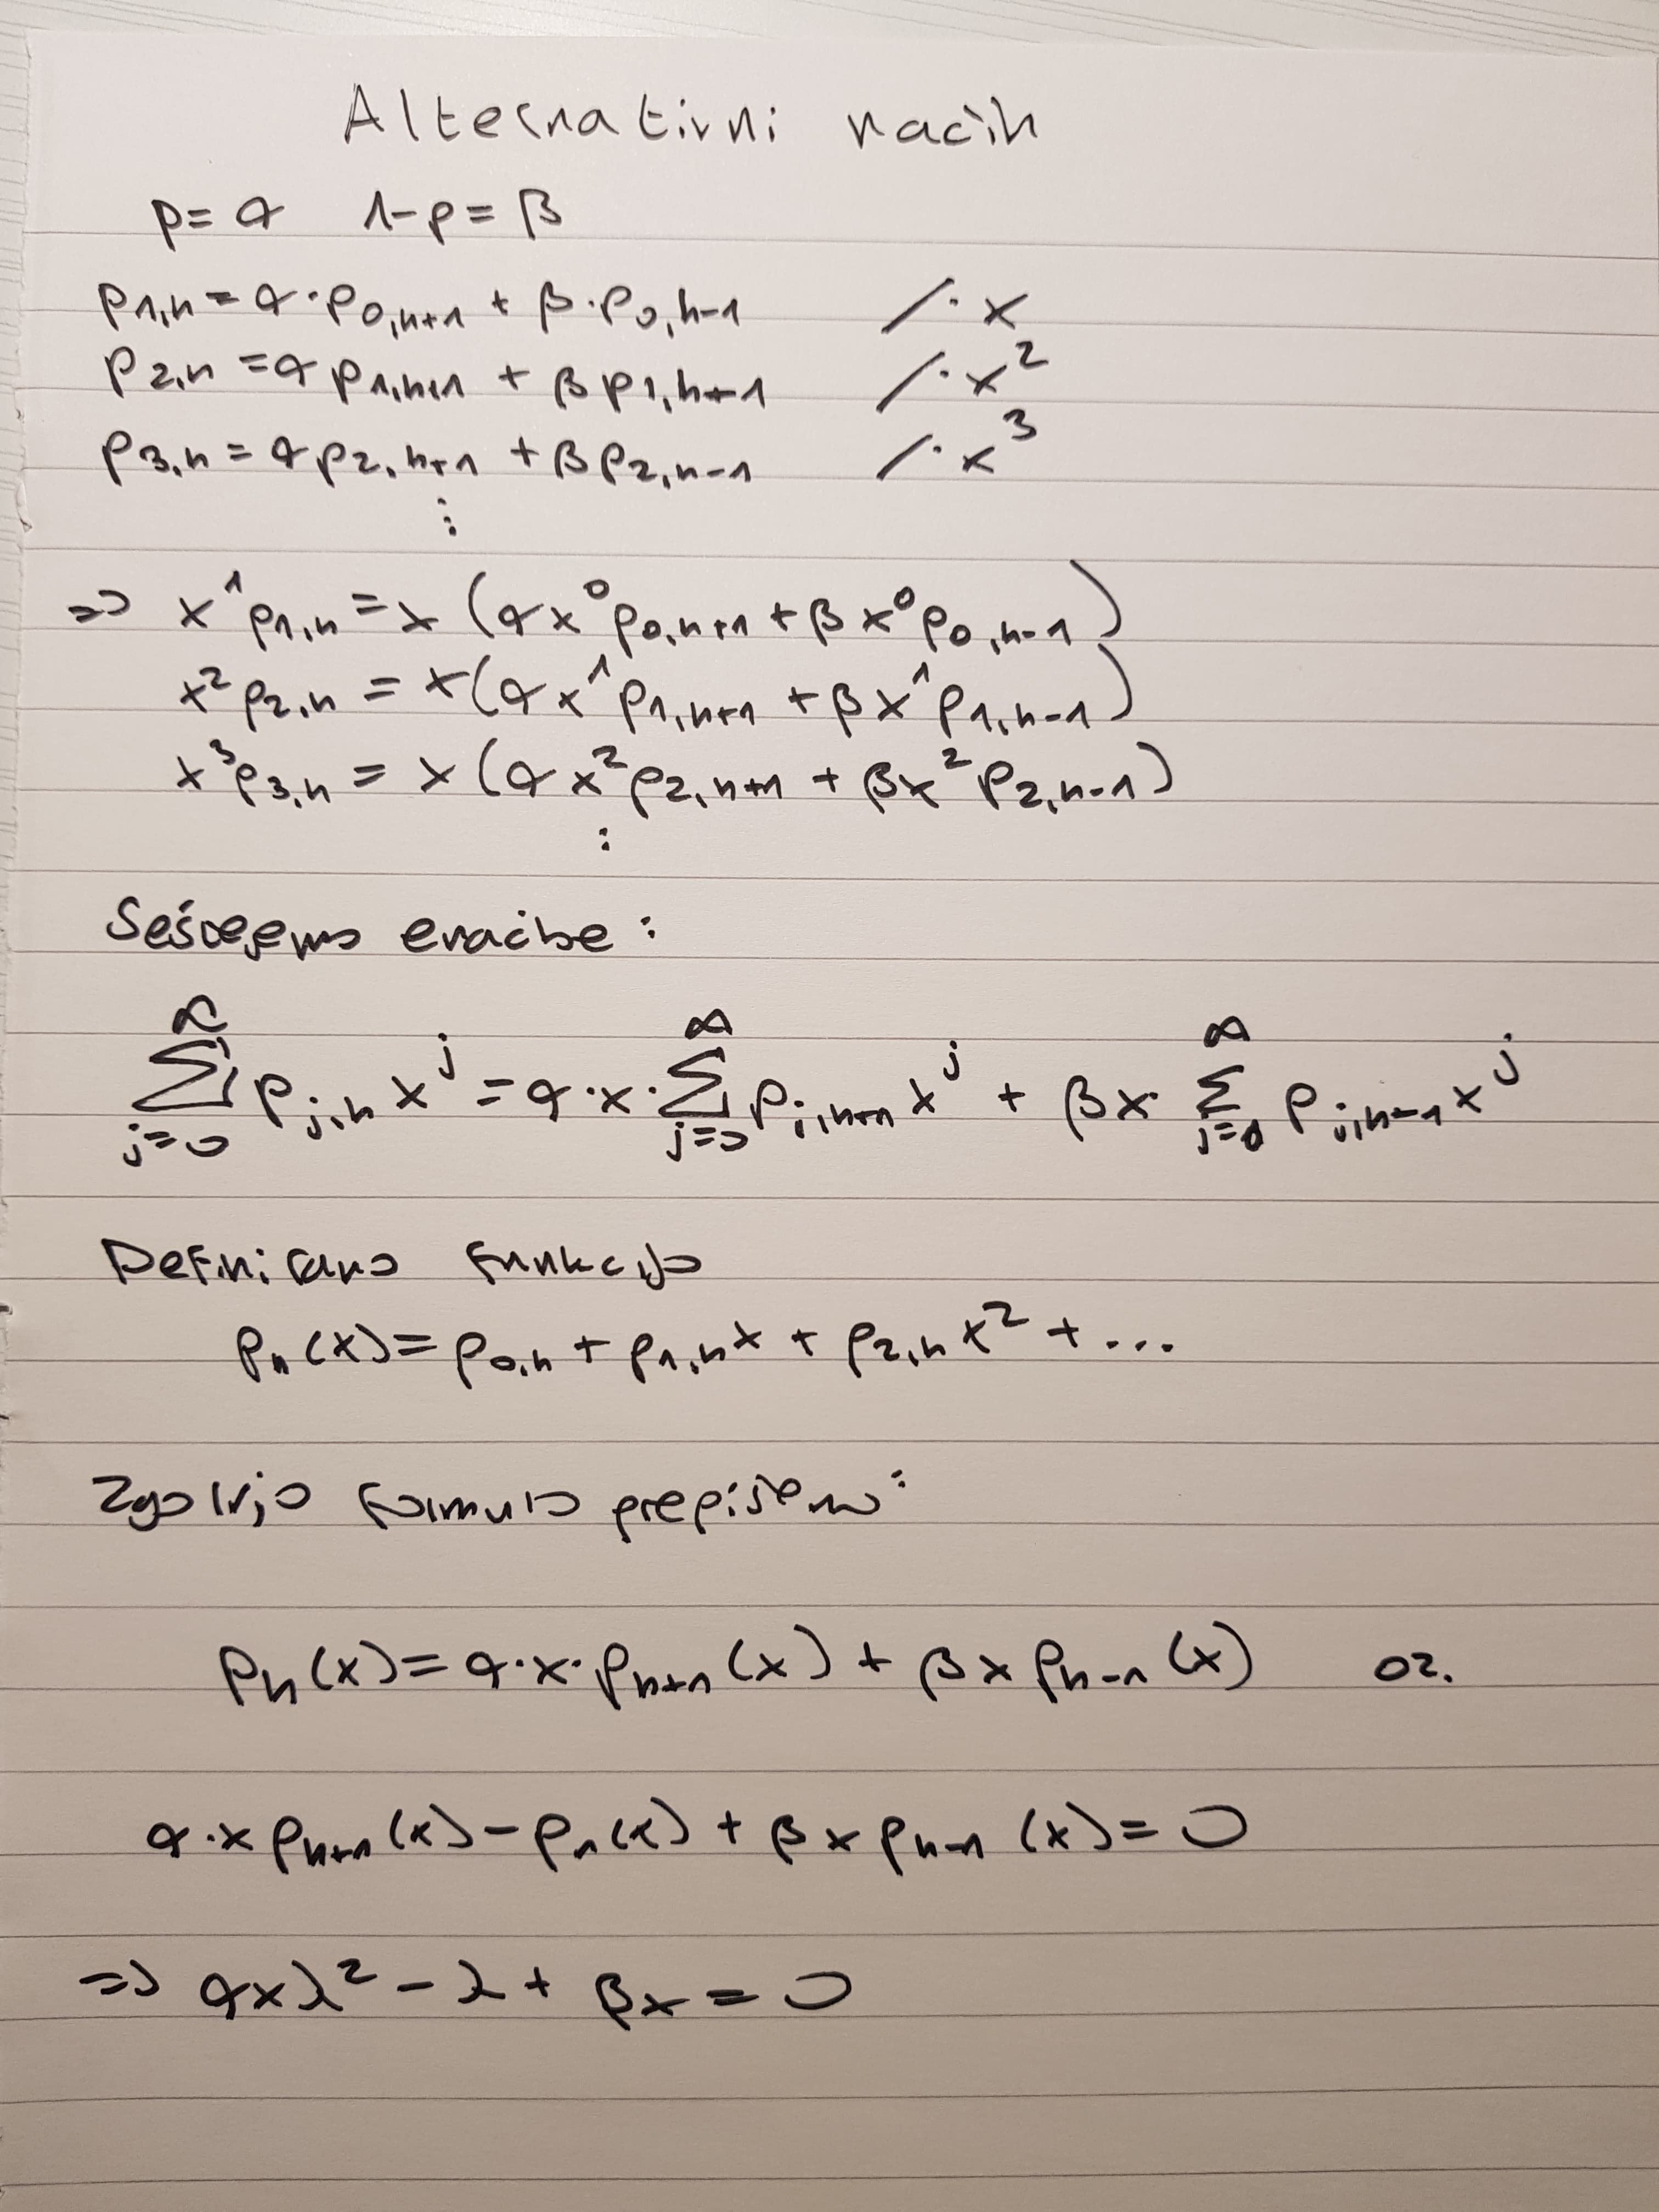 Alternativni način
p = α   1-p = β
p₁,ₙ = α · p₀,ₙ₊₁ + β · p₀,ₙ₋₁   / · x
p₂,ₙ = α p₁,ₙ₊₁ + β p₁,ₙ₊₁   / · x²
p₃,ₙ = α p₂,ₙ₊₁ + β p₂,ₙ₋₁   / · x³
⋮
=> x¹ p₁,ₙ = x (α x⁰ p₀,ₙ₊₁ + β x⁰ p₀,ₙ₋₁)
x² p₂,ₙ = x (α x¹ p₁,ₙ₊₁ + β x¹ p₁,ₙ₋₁)
x³ p₃,ₙ = x (α x² p₂,ₙ₊₁ + β x² p₂,ₙ₋₁)
:
Seštejemo enačbe:
∑_{j=0}^{∞} p_{j,n} x^j = α · x · ∑_{j=0}^{∞} p_{j,n+1} x^j + β x · ∑_{j=0}^{∞} p_{j,n-1} x^j
Definiramo funkcijo
pₙ(x) = p₀,ₙ + p₁,ₙ x + p₂,ₙ x² + ...
Zgornjo formulo prepišemo:
pₙ(x) = α · x · pₙ₊₁(x) + β x pₙ₋₁(x)   oz.
α · x pₙ₊₁(x) - pₙ(x) + β x pₙ₋₁(x) = 0
=> α x λ² - λ + β x = 0